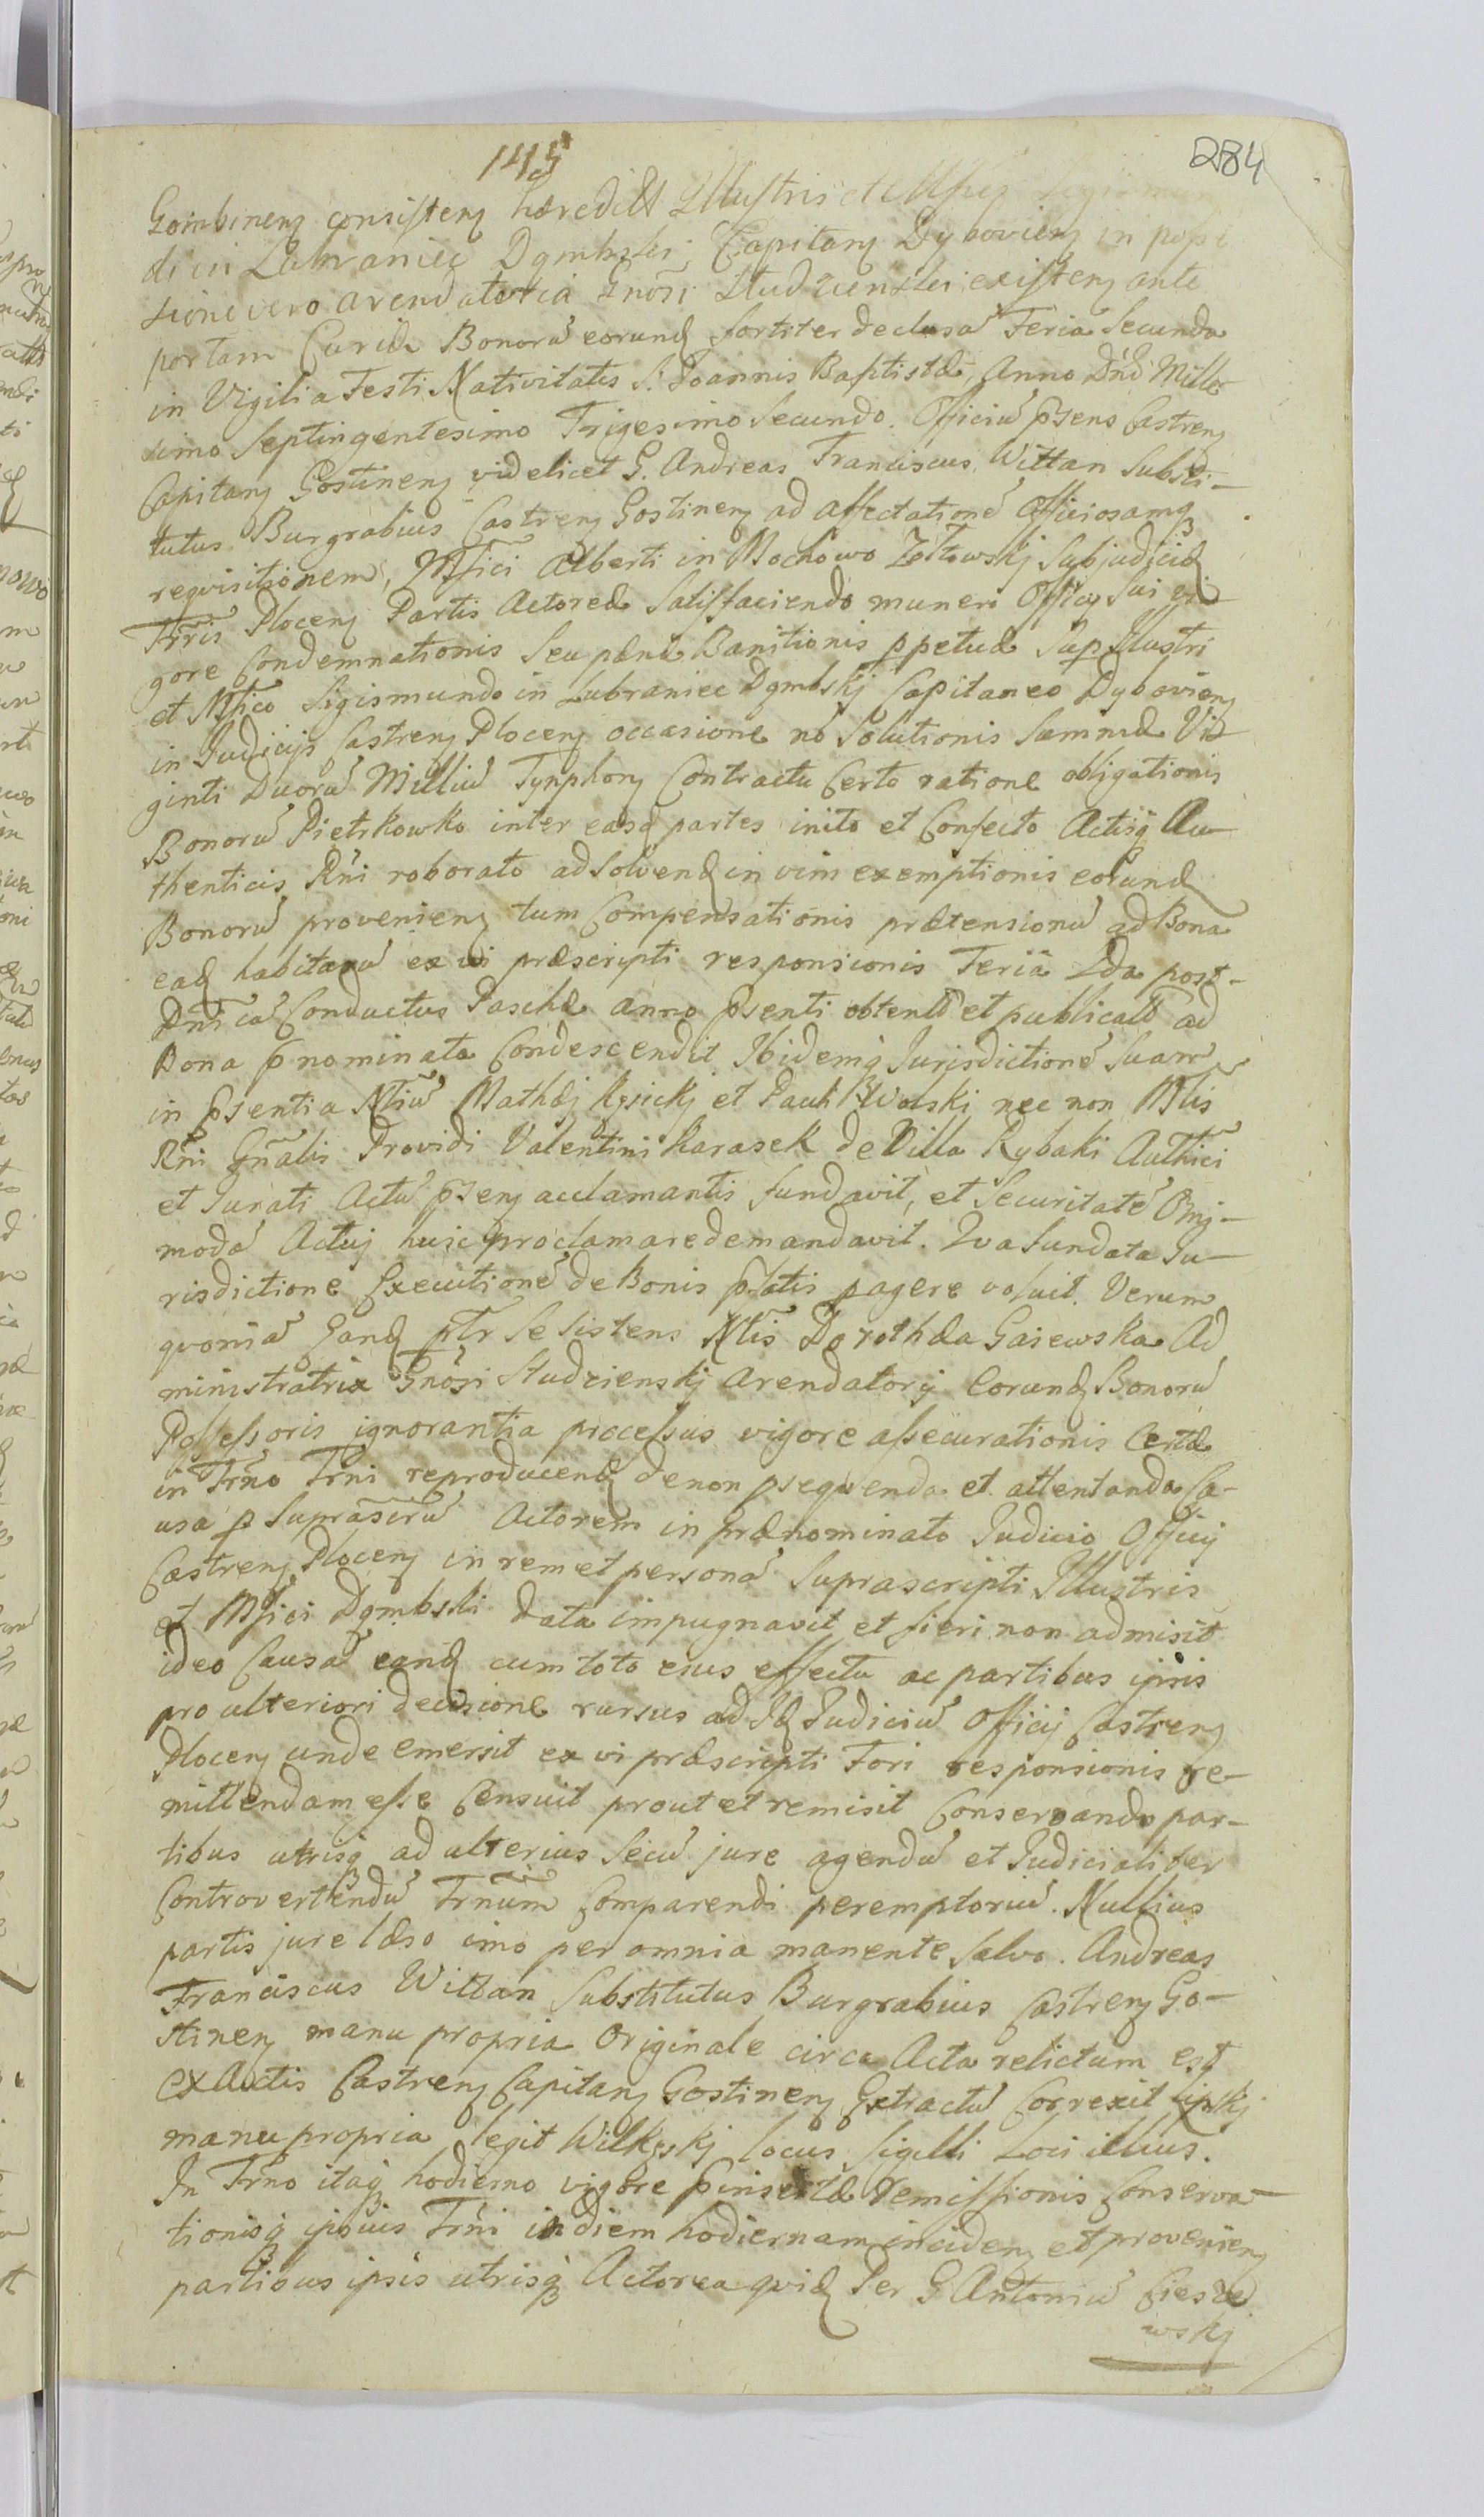 145
284
Gombinen consisten hæredit Illustris et Mfci Sigismun
di in Lubraniec Dąmbski Capitan Dybovien in posse
sione vero arendatoria Gnosi Studzienski existen ante
portam Curiæ Bonorũ eorund fortiter declusã Feria Secunda
in Vigilia Festi Nativitatis S. Joannis Baptistæ, Anno Dñi Mille
simo Septingentesimo Trigesimo Secundo. Officiũ pñsens Castren
Capitan Gostinen videlicet G. Andreas Franciscus Wittan Substi-
tutus Burgrabius Castren Gostinen ad affectationẽ Officiosamq
requisitionem, Mfici Alberti in Mochowo Zółtowskj Subjudicis
Trris Plocen Partis Actoreæ Satisfaciendo muneri Officij Sui vi
gore Condemnationis Seu pænæ Banitionis ppetuæ Sup Illustri
et Mfico Sigismundo in Lubraniec Dąmbskj Capitaneo Dybovien
in Judicijs Castren Plocen occasione nõ Solutionis Summæ Vi
ginti Duorũ Milliũ Tynphon Contractu Certo ratione obligationis
Bonorũ Pietrkowko inter easd partes inito et Confecto Actisq Au
thenticis Rñi roborato ad Solvend in vim exemptionis eorund
Bonorũ provenien tum Compensationis prætensionũ ad Bona
ead habitarũ ex vi præscripti responsionis Feria 2da post
Dnicã Conductus Paschæ anno pñsenti obtentæ et publicatæ ad
Bona p nominata Condescendit Ibidemq Jurisdictionẽ Suam
in pñsentia Nliũ Mathæj Kęsickj et Pauli Wolski nec non Mlis
Rñi Gñalis Providi Valentini Karasek de Villa Rybaki Authici
et Jurati Actũ pñsen acclamantis fundavit, et Securitatẽ Omj-
modã Actuj huic proclamare demandavit. Qva fundata Ju-
risdictione Executionẽ de Bonis pfatis pagere voluit. Verum
qvoniã Eand pltr Se Sistens Nlis Dorothæa Gaiewska Ad
ministratrix Gnosi Studzienskj Arendatorij Eorund Bonorũ
Possessoris ignorantia processus vigore assecurationis Certæ
in Trño Trñi reproducend de non pseqvenda et attentanda Ca-
usa p Suprascrũ Actorem in prænominato Judicio Officij
Castren Plocen in rem et personã Suprascripti Illustris
et Mfici Dąmbski data impugnavit et fieri non admisit
ideo Causã eand cum toto eius effectu ac partibus ipsis
pro ulteriori decisione rursus ad Id Judiciũ Officij Castren
Plocen unde emersit ex vi præscripti Fori responsionis re-
mittendam esse Censuit prout et remisit Conservando par-
tibus utrisq ad ulterius Secũ jure agendũ et Judicialiter
Controvertendũ Trñum Comparendi peremptoriũ. Nullius
partis jure læso imo per omnia manente Salvo. Andreas
Franciscus Wittan Substitutus Burgrabius Castren Go-
stinen manu propria Originale circa Acta relictum est
Ex Actis Castren Capitan Gostinen Extractũ Correxit Lipskj
manu propria legit Wilkęskj Locus Sigilli Loci illius.
In Trño itaq hodierno vigore pinsertæ remissionis Conserva-
tionisq ipsius Trñi in diem hodiernam inciden et provenien
partibus ipsis utrisq Actorea qvid Per G Antoniũ Ciesze
wskj